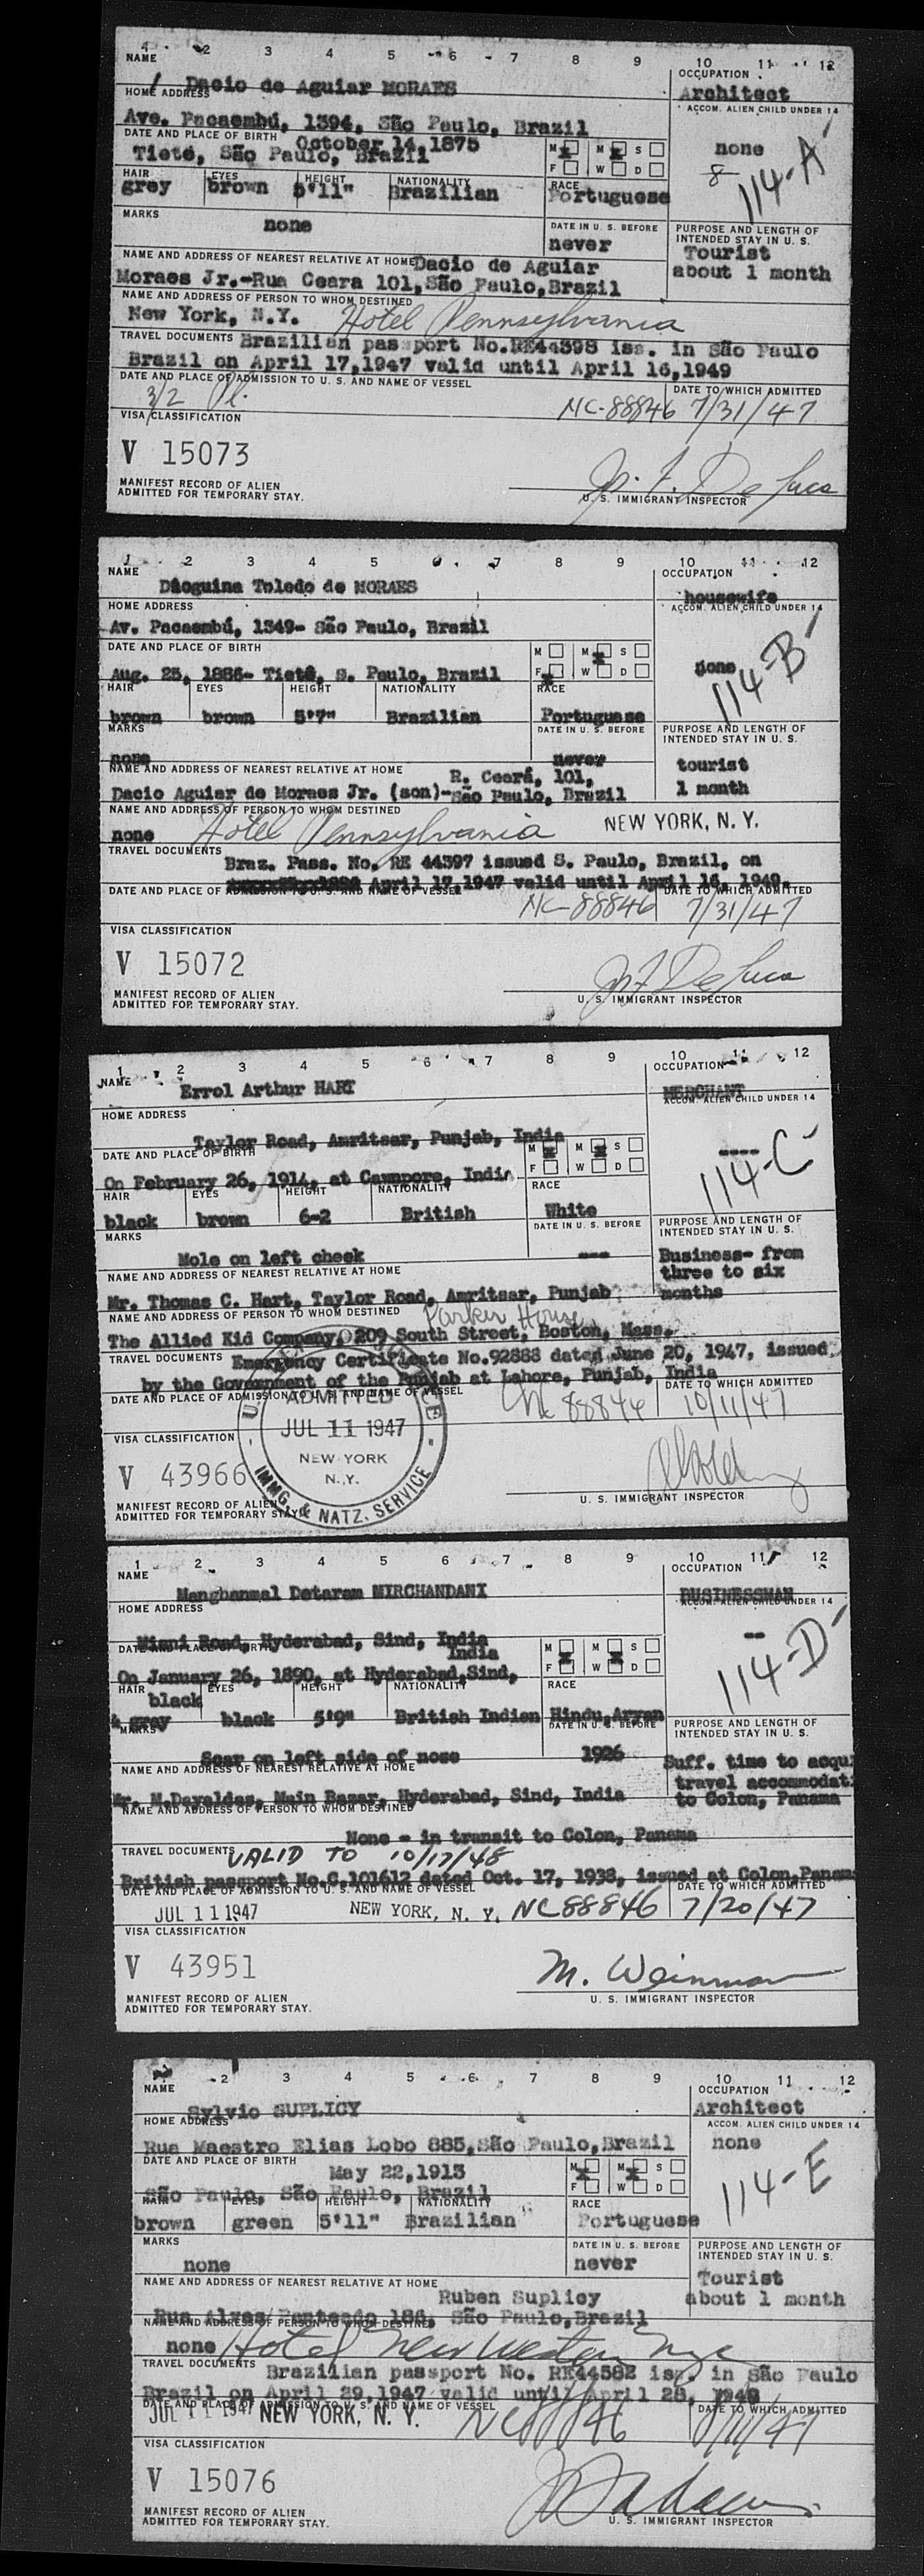 1 2 3 4 5 6 7 8 9 10 11 12
NAME
OCCUPATION
Dacio de Aguiar MORAES
Architect
HOME ADDRESS
ACCOM. ALIEN CHILD UNDER 14
Ave. Pacaembú, 1394, São Paulo, Brazil
DATE AND PLACE OF BIRTH
October 14, 1875
none
Tieté, São Paulo, Brazil
M X M X S
F W D
8
114-A
HAIR EYES HEIGHT NATIONALITY RACE
grey brown 5'11" Brazilian Portuguese
MARKS
DATE IN U. S. BEFORE
PURPOSE AND LENGTH OF INTENDED STAY IN U. S.
none
never
Tourist
about 1 month
NAME AND ADDRESS OF NEAREST RELATIVE AT HOME Dacio de Aguiar
Moraes Jr.-Rua Ceara 101, São Paulo, Brazil
NAME AND ADDRESS OF PERSON TO WHOM DESTINED
New York, N.Y. Hotel Pennsylvania
TRAVEL DOCUMENTS Brazilian passport No.RE44398 iss. in São Paulo
Brazil on April 17,1947 valid until April 16,1949
DATE AND PLACE OF ADMISSION TO U. S. AND NAME OF VESSEL
DATE TO WHICH ADMITTED
3/2
NC-88846 7/31/47
VISA CLASSIFICATION
V 15073
MANIFEST RECORD OF ALIEN
ADMITTED FOR TEMPORARY STAY.
De Luca
U. S. IMMIGRANT INSPECTOR
1 2 3 4 5 6 7 8 9 10 11 12
NAME
OCCUPATION
Dioguina Toledo de MORAES
housewife
HOME ADDRESS
ACCOM. ALIEN CHILD UNDER 14
Av. Pacaembú, 1349- São Paulo, Brazil
DATE AND PLACE OF BIRTH
M M X S
F X W D
none
114-B
Aug. 25, 1886- Tietê, S. Paulo, Brazil
HAIR EYES HEIGHT NATIONALITY RACE
brown brown 5'7" Brazilian Portuguese
MARKS
DATE IN U. S. BEFORE
PURPOSE AND LENGTH OF INTENDED STAY IN U. S.
none
never
tourist
1 month
NAME AND ADDRESS OF NEAREST RELATIVE AT HOME
R. Ceará, 101,
Dacio Aguiar de Moraes Jr. (son)-São Paulo, Brazil
NAME AND ADDRESS OF PERSON TO WHOM DESTINED
none Hotel Pennsylvania NEW YORK, N. Y.
TRAVEL DOCUMENTS
Braz. Pass. No. RE 44397 issued S. Paulo, Brazil, on
April 17, 1947 valid until April 16, 1949.
DATE AND PLACE OF ADMISSION TO U. S. AND NAME OF VESSEL
DATE TO WHICH ADMITTED
NC-88846 7/31/47
VISA CLASSIFICATION
V 15072
MANIFEST RECORD OF ALIEN
ADMITTED FOR TEMPORARY STAY.
De Luca
U. S. IMMIGRANT INSPECTOR
1 2 3 4 5 6 7 8 9 10 11 12
NAME
OCCUPATION
Errol Arthur HART
MERCHANT
HOME ADDRESS
ACCOM. ALIEN CHILD UNDER 14
Taylor Road, Amritsar, Punjab, India
DATE AND PLACE OF BIRTH
M X M X S
F W D
----
114-C
On February 26, 1914, at Cawnpore, India
HAIR EYES HEIGHT NATIONALITY RACE
black brown 6-2 British White
MARKS
DATE IN U. S. BEFORE
PURPOSE AND LENGTH OF INTENDED STAY IN U. S.
Mole on left cheek
---
Business- from
three to six
months
NAME AND ADDRESS OF NEAREST RELATIVE AT HOME
Mr. Thomas C. Hart, Taylor Road, Amritsar, Punjab
NAME AND ADDRESS OF PERSON TO WHOM DESTINED
Parker House
The Allied Kid Company, 209 South Street, Boston, Mass.
TRAVEL DOCUMENTS Emergency Certificate No.92888 dated June 20, 1947, issued
by the Government of the Punjab at Lahore, Punjab, India
DATE AND PLACE OF ADMISSION TO U. S. AND NAME OF VESSEL
DATE TO WHICH ADMITTED
NC 88846 10/11/47
ADMITTED
JUL 11 1947
NEW YORK
N.Y.
IMMG. & NATZ. SERVICE
VISA CLASSIFICATION
V 43966
MANIFEST RECORD OF ALIEN
ADMITTED FOR TEMPORARY STAY.
U. S. IMMIGRANT INSPECTOR
1 2 3 4 5 6 7 8 9 10 11 12
NAME
OCCUPATION
Manghanmal Detaram MIRCHANDANI
BUSINESSMAN
HOME ADDRESS
ACCOM. ALIEN CHILD UNDER 14
Road, Hyderabad, Sind, India
DATE AND PLACE OF BIRTH
India
On January 26, 1890, at Hyderabad,Sind,
M M S
F X W X D
--
114-D
HAIR EYES HEIGHT NATIONALITY RACE
black
& grey black 5'9" British Indian Hindu,Aryan
MARKS
DATE IN U. S. BEFORE
PURPOSE AND LENGTH OF INTENDED STAY IN U. S.
Scar on left side of nose
1926
Suff. time to acqui
travel accommodati
to Colon, Panama
NAME AND ADDRESS OF NEAREST RELATIVE AT HOME
Mr. M.Dayaldas, Main Bazar, Hyderabad, Sind, India
NAME AND ADDRESS OF PERSON TO WHOM DESTINED
None - in transit to Colon, Panama
TRAVEL DOCUMENTS VALID TO 10/17/48
British passport No.C.101612 dated Oct. 17, 1938, issued at Colon,Panama
DATE AND PLACE OF ADMISSION TO U. S. AND NAME OF VESSEL
DATE TO WHICH ADMITTED
JUL 11 1947 NEW YORK, N. Y. NC88846 7/20/47
VISA CLASSIFICATION
V 43951
MANIFEST RECORD OF ALIEN
ADMITTED FOR TEMPORARY STAY.
M. Weinman
U. S. IMMIGRANT INSPECTOR
1 2 3 4 5 6 7 8 9 10 11 12
NAME
OCCUPATION
Sylvio SUPLICY
Architect
HOME ADDRESS
ACCOM. ALIEN CHILD UNDER 14
Rua Maestro Elias Lobo 885,São Paulo,Brazil
none
DATE AND PLACE OF BIRTH
May 22,1913
São Paulo, São Paulo, Brazil
M X M X S
F W D
114-E
HAIR EYES HEIGHT NATIONALITY RACE
brown green 5'11" Brazilian Portuguese
MARKS
DATE IN U. S. BEFORE
PURPOSE AND LENGTH OF INTENDED STAY IN U. S.
none
never
Tourist
about 1 month
NAME AND ADDRESS OF NEAREST RELATIVE AT HOME
Ruben Suplicy
Rua Alves 186, São Paulo,Brazil
NAME AND ADDRESS OF PERSON TO WHOM DESTINED
none Hotel New Weston nyc
TRAVEL DOCUMENTS Brazilian passport No. RE44582 iss. in São Paulo
Brazil on April 29,1947 valid until April 28, 1949
DATE AND PLACE OF ADMISSION TO U. S. AND NAME OF VESSEL
DATE TO WHICH ADMITTED
JUL 11 1947 NEW YORK, N. Y. NC 88846
VISA CLASSIFICATION
V 15076
MANIFEST RECORD OF ALIEN
ADMITTED FOR TEMPORARY STAY.
U. S. IMMIGRANT INSPECTOR